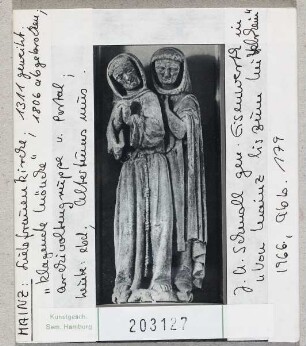 MAINZ: Liebfrauenkirche; 1311 geweiht.
1806 abgebrochen;
"klagende Mönche"
aus Kreuzigungsgruppe u. Portal;
heute: ebd., Altertums mus.
J. A. Schmoll gen. Eisenwerth in
"Von Mainz bis zum
1966, Abb. 179
Kunstgesch.
Sem. Hamburg
203127